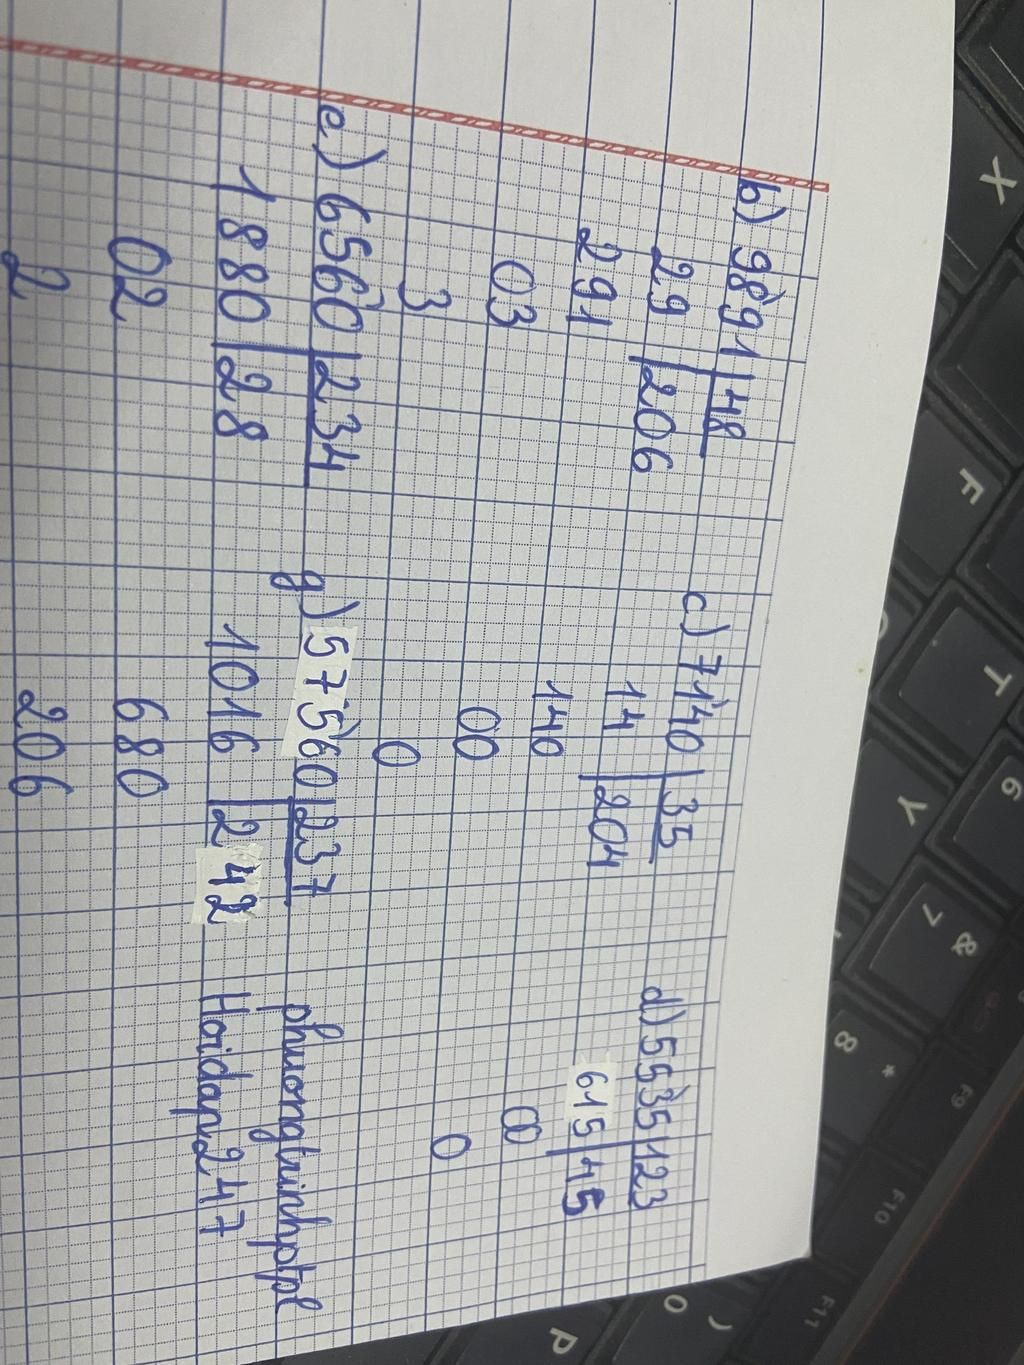 b) 9891 48
29 206
291
03
3
c) 7140 35
14 204
140
00
0
d) 5535 123
615 45
00
0
e) 6560 234
1880 28
02
2
g) 57560 237
1016 242
680
206
phuongtrinhptpl
Hoidap247
X
F
T
Y
6
& 7
* 8
) 0
P
F9
F10
F11